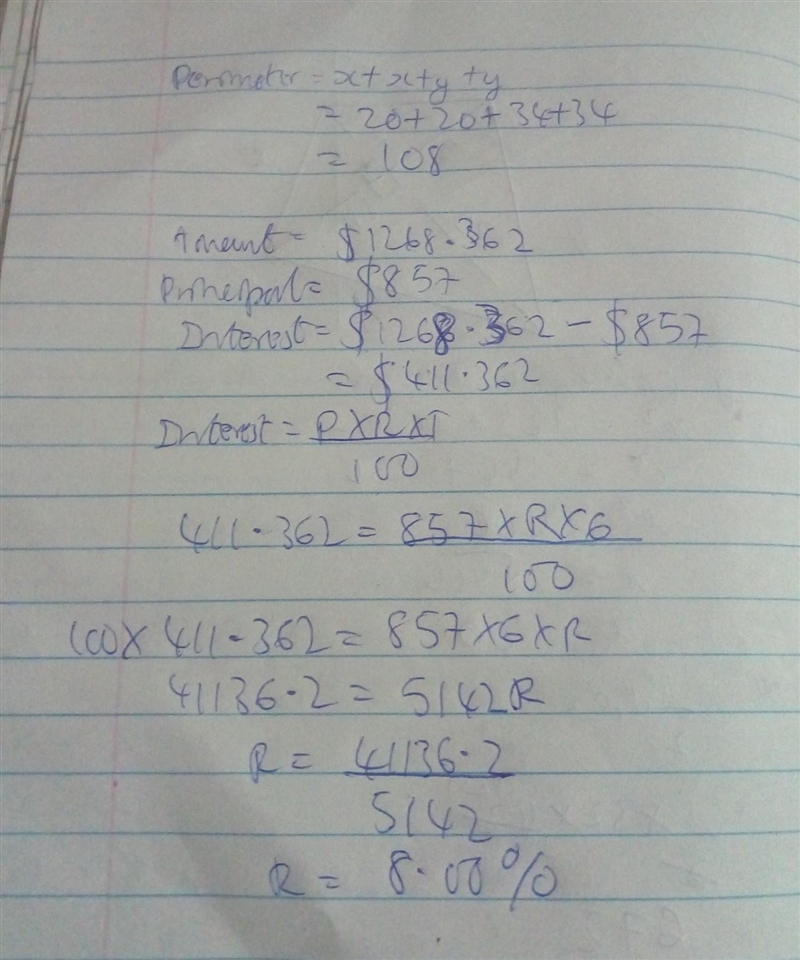 Perimeter = x+x+y+y
= 20+20+34+34
= 108
Amount = $1268.362
Principal = $857
Interest = $1268.362 - $857
= $411.362
Interest = PXRXT
100
411.362 = 857XRX6
100
100X 411.362 = 857X6XR
41136.2 = 5142R
R = 41136.2
5142
R = 8.00%